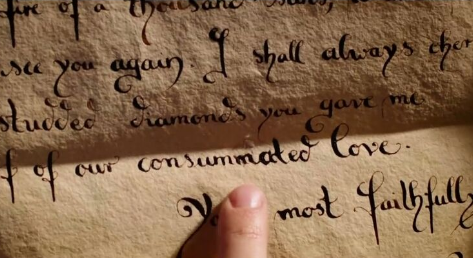 fire of a thousand
see you again. I shall always cher
studded diamonds you gave me
f of our consummated love.
most faithfully